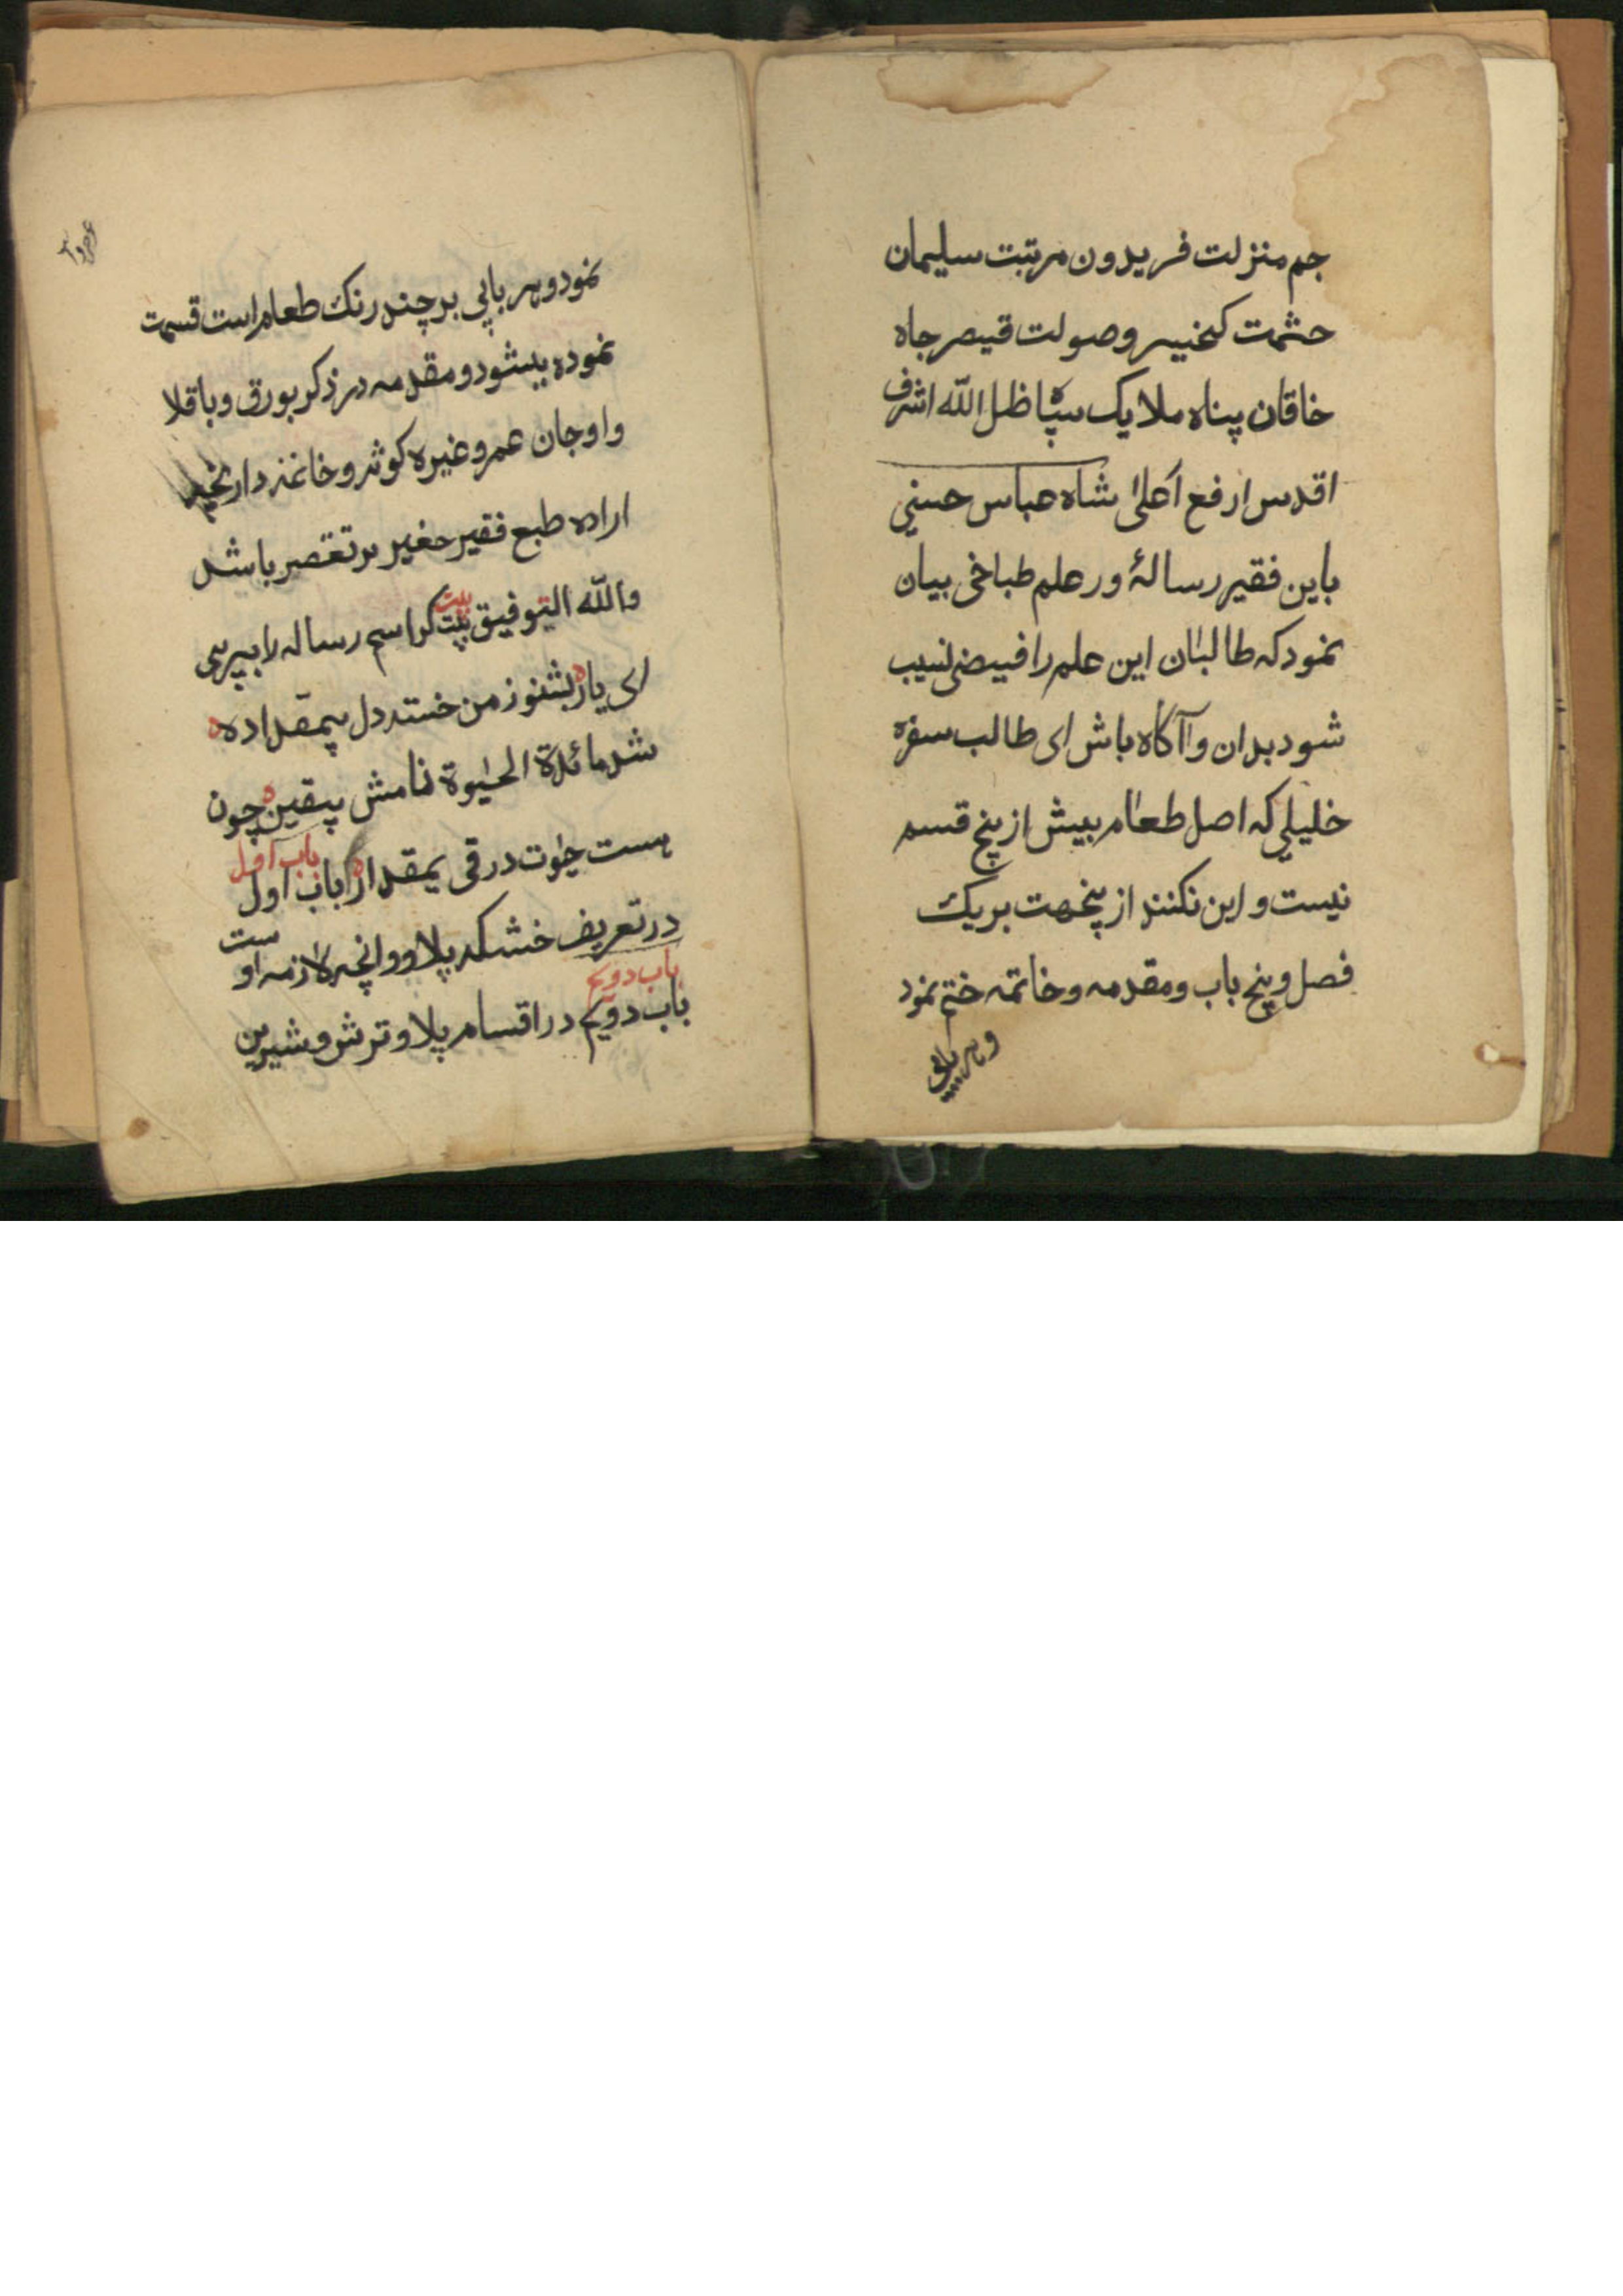 جم منزلت فریدون مرتبت سلیمان
حشمت کیخسرو صولت قیصر جاه
خاقان پناه ملایک سپاه ظل الله اشرف
اقدس ارفع اعلی شاه عباس حسینی
باین فقیر رسالهٔ ور علم طباخی بیان
نمود که طالبان این علم را فیضی نسیب
شود بدان و آگاه باش ای طالب سفره
خلیلی که اصل طعام بیش از پنج قسم
نیست و این نکنند از پنجهت بریک
فصل و پنج باب و مقدمه و خاتمه ختم نمود
و هر بابی
نمود و هر بابی بر چند رنک طعام است قسمت
نموده بیشود و مقدمه در ذکر بورق و باقلا
و اوجان عمر و غیره کوشد و خانمه در آنچه
اراده طبع فقیر حغیر بر تغصر باشد
والله التوفیق بیت کر اسم رساله را بپرسی
بیت
ای یار بشنو ز من خسته دل بیمقداده
شد مائدة الحیوة نامش بیقین چون
هست حیٰوت در قی بمقدار باب اول
باب اول
در تعریف خشکه پلاو و انچه لازمه او
ست
باب دویم
باب دویم در اقسام پلاو ترش و شیرین